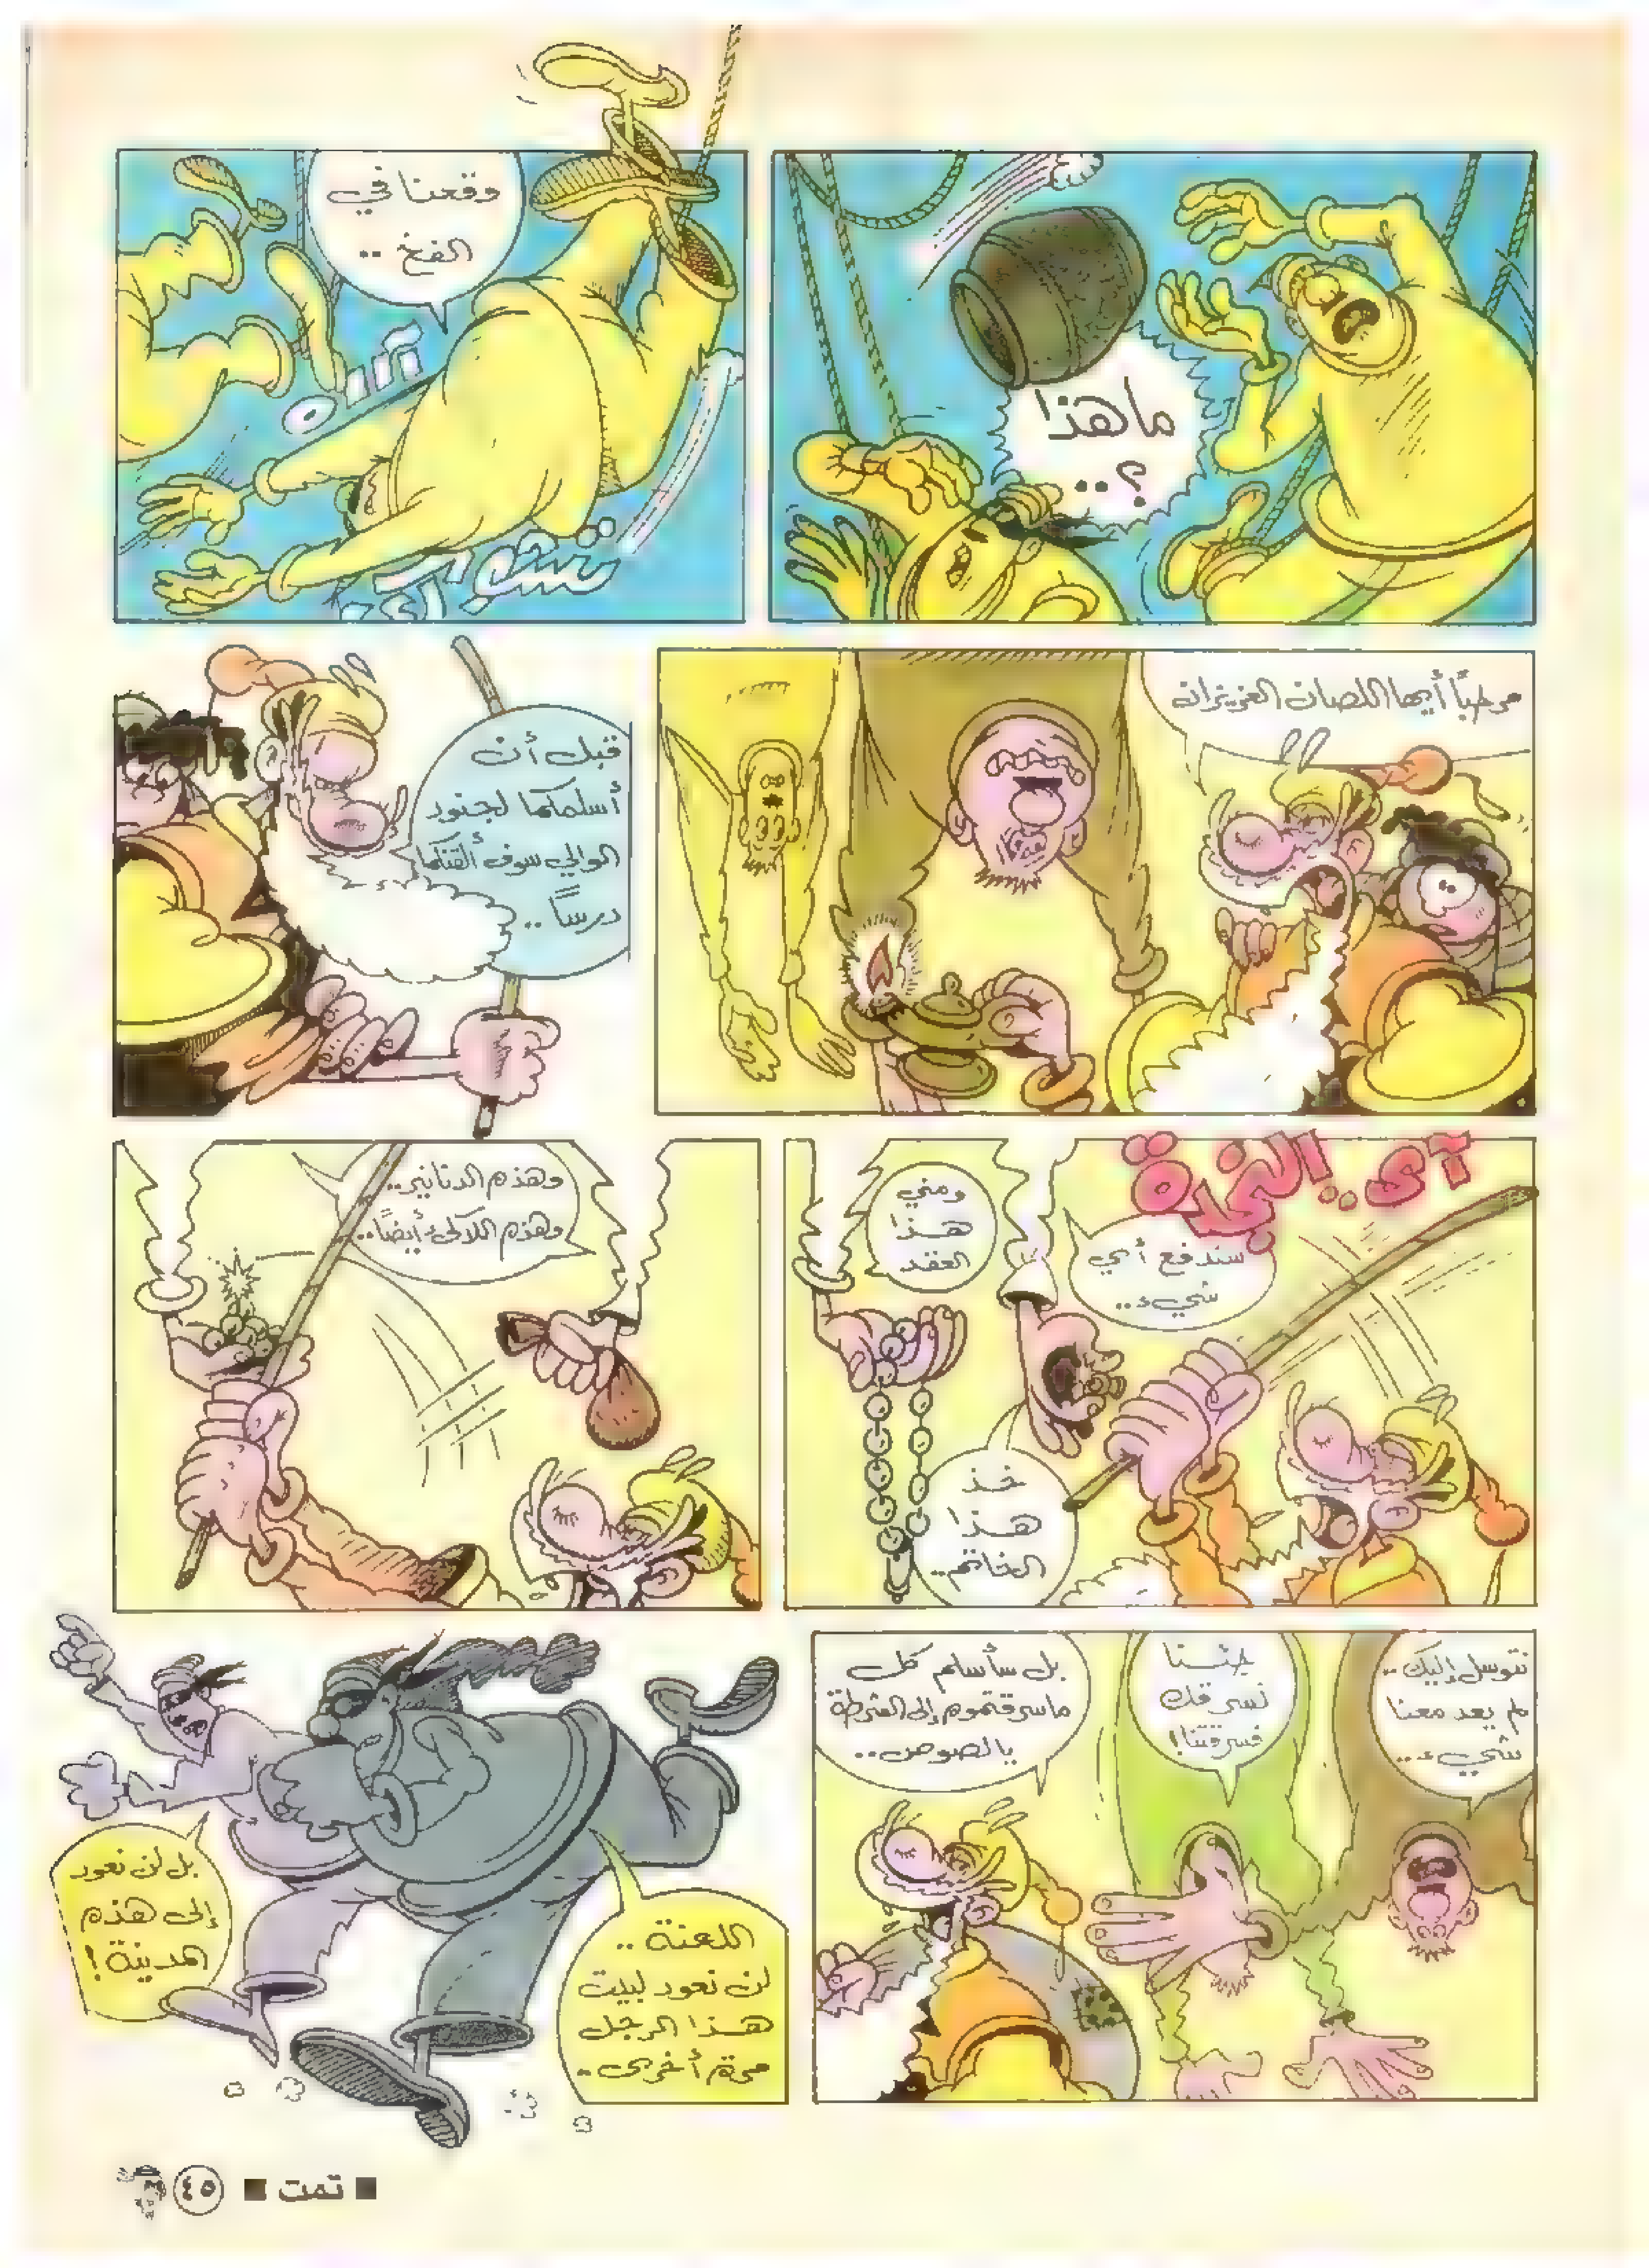 ما هذا
؟..
وقعنا في
الفخ ..
مرحبًا أيها اللصان العزيزان
قبل أن
أسلمكما لجنود
الوالي سوف ألقنكما
درسًا ..
آى .. النجدة
سندفع أي
شيء ..
ومني
هذا
العقد
خذ
هذا
الخاتم ..
وهذه الدنانير ..
وهذه اللآلئ أيضًا ..
نتوسل إليك ..
لم يعد معنا
شيء ..
جئنا
نسرقك
فسرقتنا!
بل سأسلم كل
ماسرقتموه إلى الشرطة
يا لصوص ..
اللعنة ..
لن نعود لبيت
هذا الرجل
مرة أخرى ..
بل لن نعود
إلى هذه
المدينة !
■ تمت ■ ٤٥